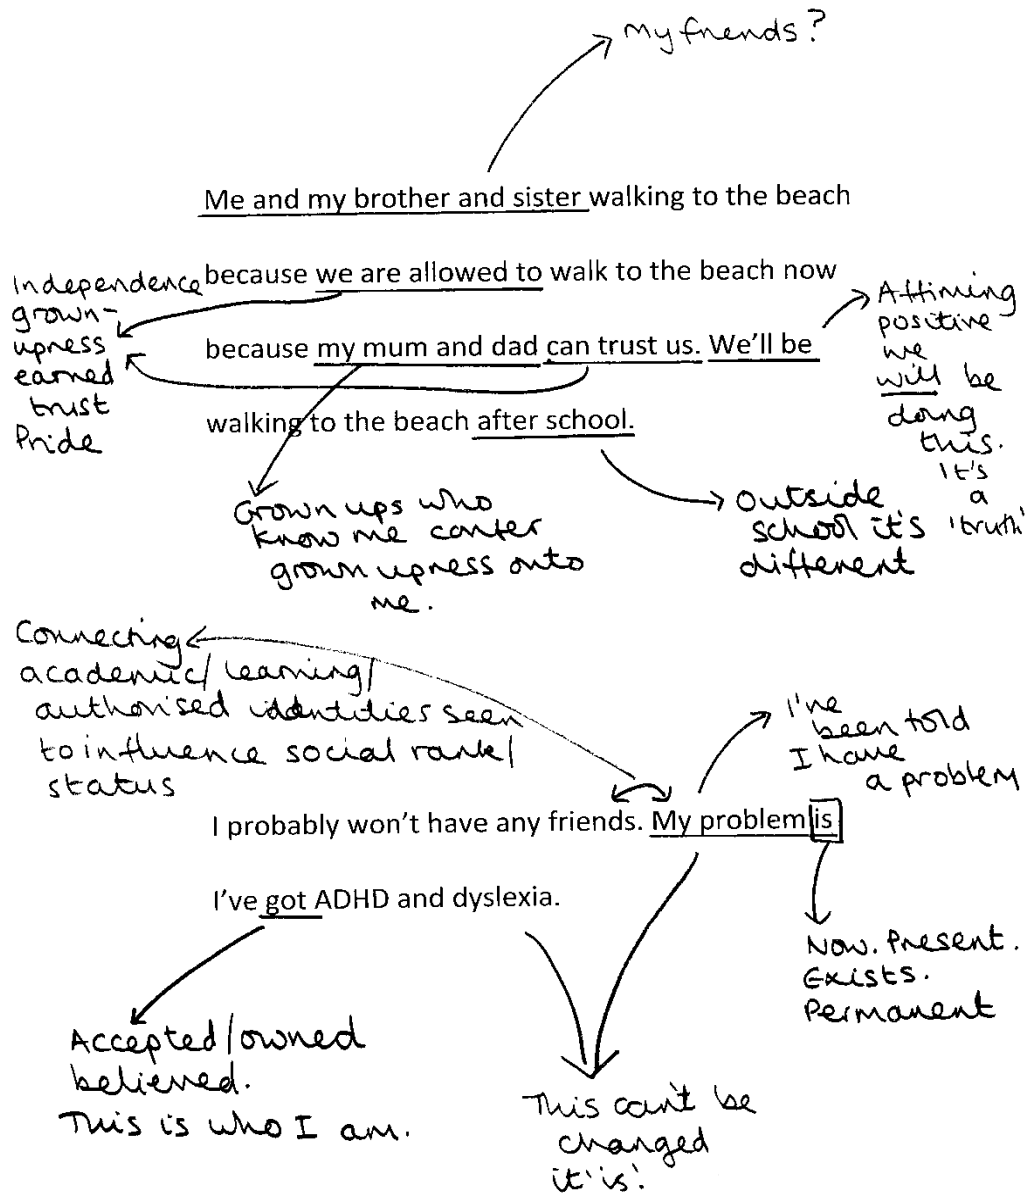 My friends?
Me and my brother and sister walking to the beach
because we are allowed to walk to the beach now
because my mum and dad can trust us. We'll be
walking to the beach after school.
Independence
grown-
upness
earned
trust
Pride
Affirming
positive
we
will be
doing
this.
It's
a
'truth'
Grown ups who
know me confer
grown upness onto
me.
outside
school it's
different
Connecting
academic/learning/
authorised identities seen
to influence social rank/
status
I've
been told
I have
a problem
I probably won't have any friends. My problem is
I've got ADHD and dyslexia.
Now. Present.
Exists.
Permanent
Accepted/owned
believed.
This is who I am.
This can't be
changed
it 'is'.